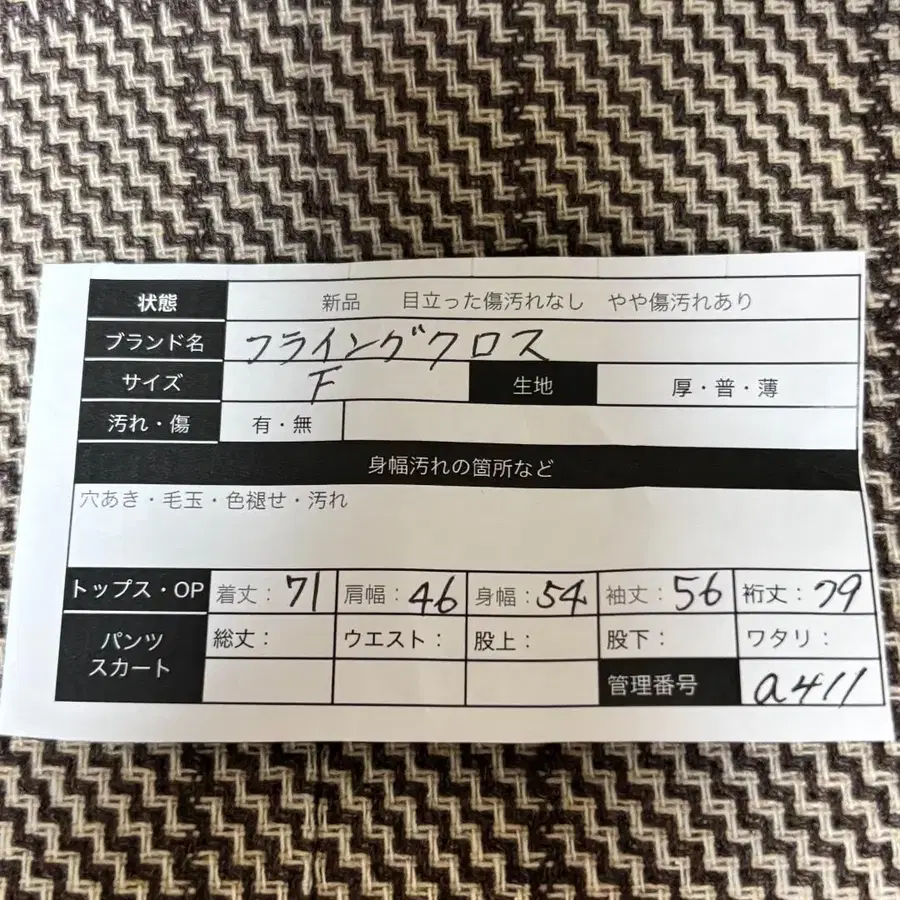 状態 新品 目立った傷汚れなし やや傷汚れあり
ブランド名 フライングクロス
サイズ F 生地 厚・普・薄
汚れ・傷 有・無
身幅汚れの箇所など
穴あき・毛玉・色褪せ・汚れ
トップス・OP 着丈：71 肩幅：46 身幅：54 袖丈：56 裄丈：79
パンツ 総丈： ウエスト： 股上： 股下： ワタリ：
スカート
管理番号 a411